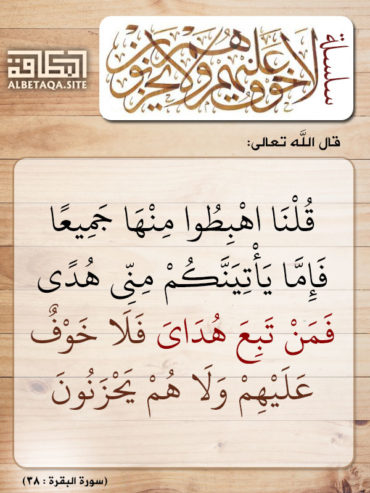 البطاقة
ALBETAQA.SITE
سلسلة
لا خوف عليهم ولا هم يحزنون
قال الله تعالى:
قُلْنَا اهْبِطُوا مِنْهَا جَمِيعًا
فَإِمَّا يَأْتِيَنَّكُمْ مِنِّي هُدًى
فَمَنْ تَبِعَ هُدَايَ فَلَا خَوْفٌ
عَلَيْهِمْ وَلَا هُمْ يَحْزَنُونَ
(سورة البقرة : ٣٨)